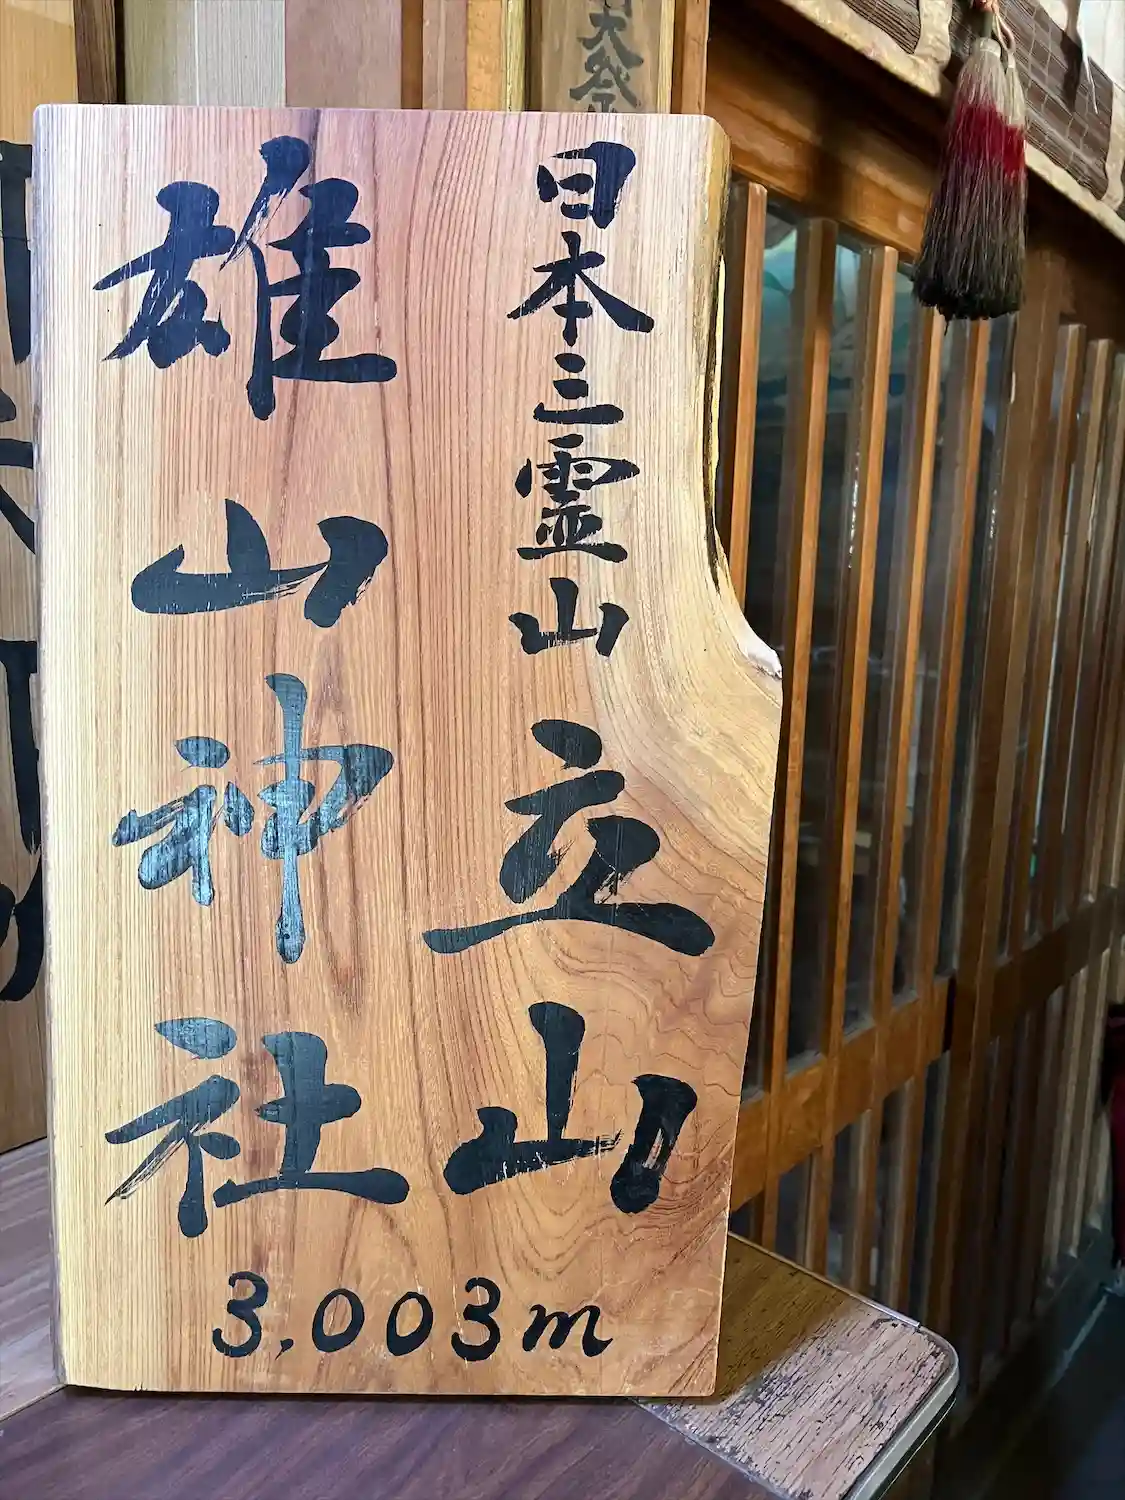 日本三霊山
立山
雄山神社
3.003m
大祭